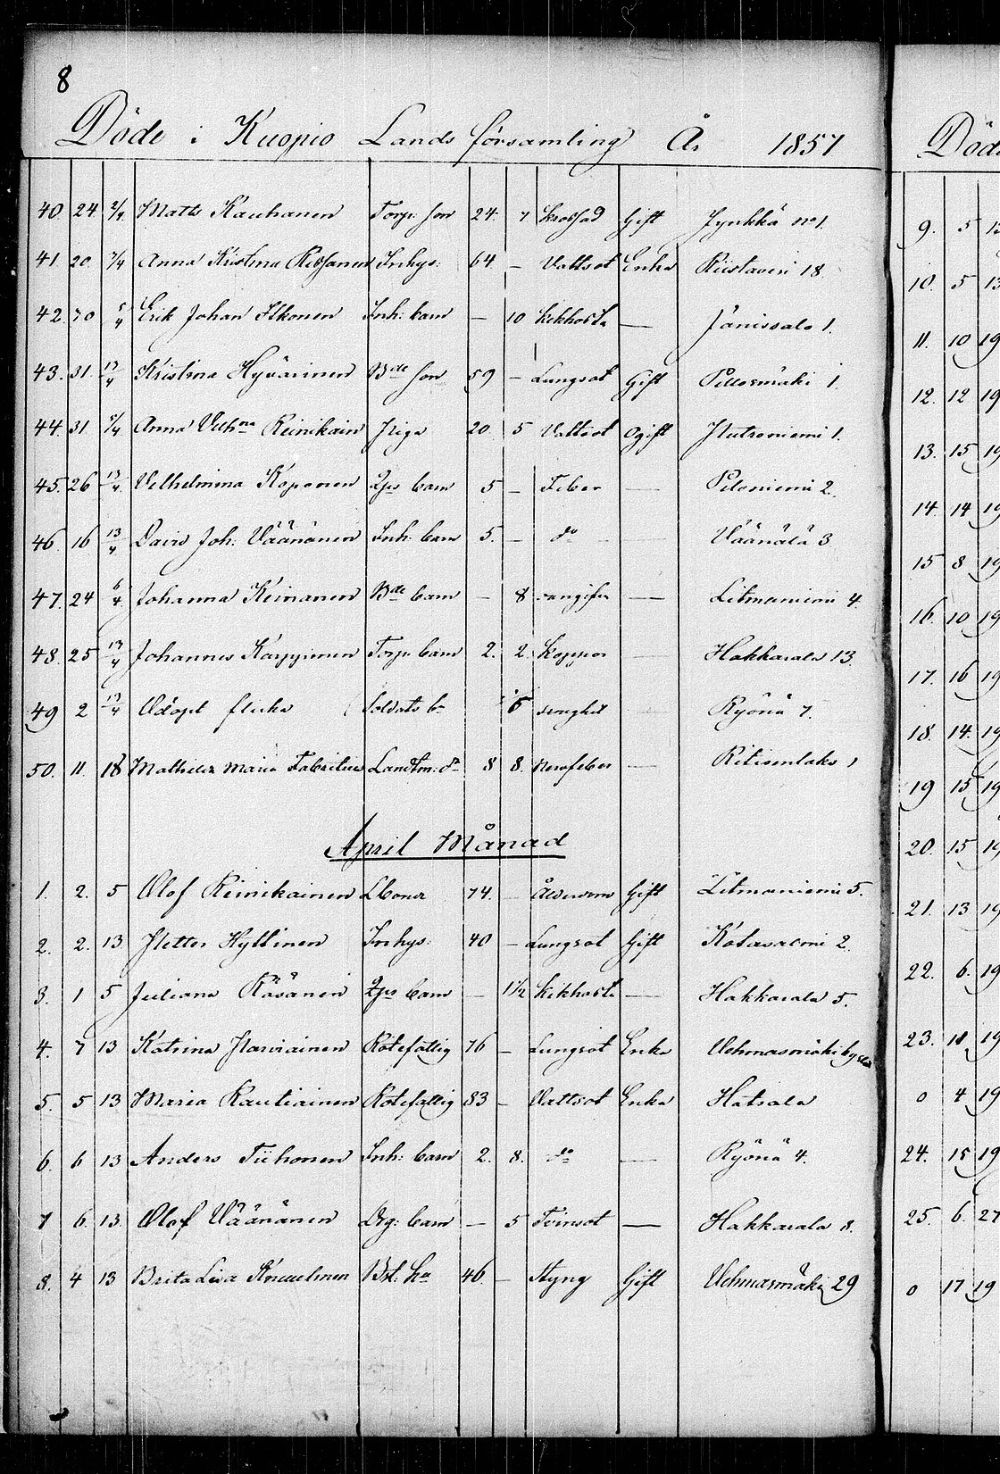 8
Döde i Kuopio Lands församling År 1857
40. 24. 2/4 Matts Kauhanen Torp: son 24. 7 Gift Jynkkä no 1.
41 20. 7/4 Anna Kristina Inhys: 64. - Vattsot Enka Riistaveri 18
42. 30 5/4 Erik Johan Ilkonen Inh: barn - 10 kikhosta — Jänissalo 1.
43. 31. 12/4 Kristina Hyvärinen Bde 59 - Lungsot Gift Pellosmäki 1.
44. 31. 5/4 Anna Vilhna Reinikain Piga 20. 5 Vattsot Ogift Hutroniemi 1.
45. 26 13/4 Vilhelmina Koponen barn 5 - Feber — Peloniemi 2.
46. 16 13/4 David Joh: Väänänen Inh: barn 5. - do - Väänälä 3
47. 24 6/4 Johanna Keinänen Bde barn - 8 — Litmaniemi 4.
48. 25 13/4 Johannes Karppinen Torp: barn 2. 2. koppor — Hakkarala 13.
49 2 12/4 Odöpt flicka Soldats b. 5 — Ryönä 7.
50. 11. 18 Mathilda Maria Fabritius Landtm: dr 8 8. Nervfeber — Ritisenlaks 1
April Månad
1. 2. 5 Olof Reinikainen 74. - Ålderdom Gift Litmaniemi 5.
2. 2. 13 Petter Hyttinen Inhys: 40 - Lungsot Gift Kotasaomi 2.
3. 1 5 Juliana Räsänen barn - 1 1/2 kikhosta — Hakkarala 5.
4. 7 13 Katrina Harviainen Rotefattig 76 - Lungsot Enka Vehmasmäki
5. 5 13 Maria Rautiainen Rotefattig 83 - Vattsot Enka Hatsala
6. 6 13 Anders Tiihonen Inh: barn 2. 8. do — Ryönä 4.
7 6. 13. Olof Väänänen Drg: barn - 5 Tvinsot — Hakkarala 8.
8. 4 13 Brita Lisa Knuutinen Bst. hu 46. - Styng Gift Vehmasmäki 29
Död
9. 5
10. 5 13
11. 10 19
12. 12 19
13. 15 19
14. 14 19
15 8 19
16. 10 19
17. 16 19
18. 14 19
19 15 19
20. 15 19
21. 13 19
22. 6. 19
23. 11 19
0 4 19
24. 15 19
25. 6. 27
0 17 19